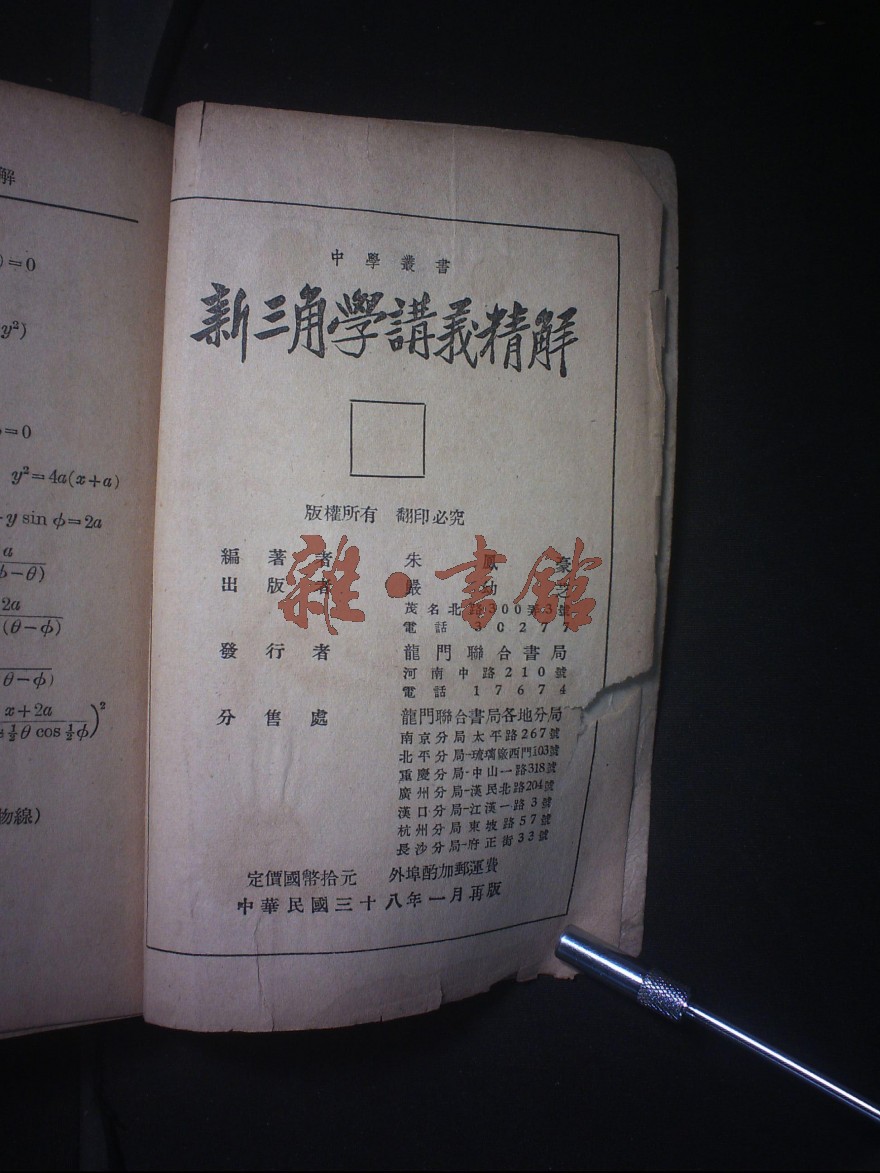 解
)=0
y²)
=0
y²=4a(x+a)
-y sin φ=2a
a
φ-θ)
2a
(θ-φ)
θ-φ)
x+2a
½θ cos ½φ)²
物線)
中學叢書
新三角學講義精解
版權所有 翻印必究
編著者 朱鳳豪
出版者 嚴幼芝
茂名北路300弄3號
電話 30277
發行者 龍門聯合書局
河南中路210號
電話 17674
分售處 龍門聯合書局各地分局
南京分局太平路267號
北平分局-琉璃廠西門103號
重慶分局-中山一路318號
廣州分局-漢民北路204號
漢口分局-江漢一路3號
杭州分局東坡路57號
長沙分局-府正街33號
定價國幣拾元 外埠酌加郵運費
中華民國三十八年一月再版
雜·書館